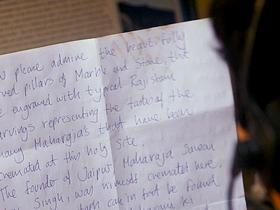 please admire the beautifully
pillars of Marble and Stone, that
engraved with typical Rajistani
carvings representing the tastes of the
many Maharaja's that have been
cremated at this holy site.
The founder of Jaipur Maharaja Sawai
Singh, was himself cremated here,
can in fact be found
ki